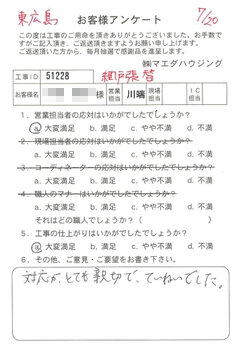 東広島
お客様アンケート
7/20
この度は工事のご用命を頂きありがとうございました。お手数で
すがご記入頂き、ご返送頂きますようお願い申し上げます。
ご返送頂いた方から、毎月抽選で感謝品を進呈します。
㈱マエダハウジング
工事ID 51228 網戸張替
お客様名 様 営業担当 川端 現場担当 IC担当
1. 営業担当者の応対はいかがでしたでしょうか?
a. 大変満足 b. 満足 c. やや不満 d. 不満
2. 現場担当者の応対はいかがでしたでしょうか?
a. 大変満足 b. 満足 c. やや不満 d. 不満
3. コーディネーターの応対はいかがでしたでしょうか?
a. 大変満足 b. 満足 c. やや不満 d. 不満
4. 職人のマナーはいかがでしたでしょうか?
a. 大変満足 b. 満足 c. やや不満 d. 不満
それはどの職人でしょうか?( )
5. 工事の仕上がりはいかがでしたでしょうか?
a. 大変満足 b. 満足 c. やや不満 d. 不満
6. その他、ご意見・ご要望をお書き下さい。
対応が、とても親切で、ていねいでした。